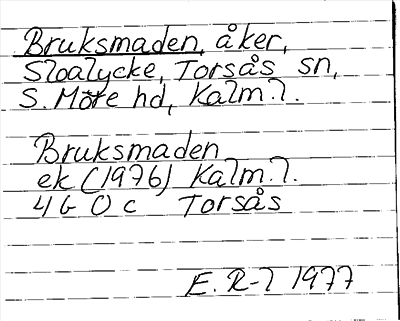 Bruksmaden, åker,
Sloalycke, Torsås sn,
S. Möre hd, Kalm.l.
Bruksmaden
ek (1976) Kalm.l.
4 G 0 c Torsås
E. R-l 1977